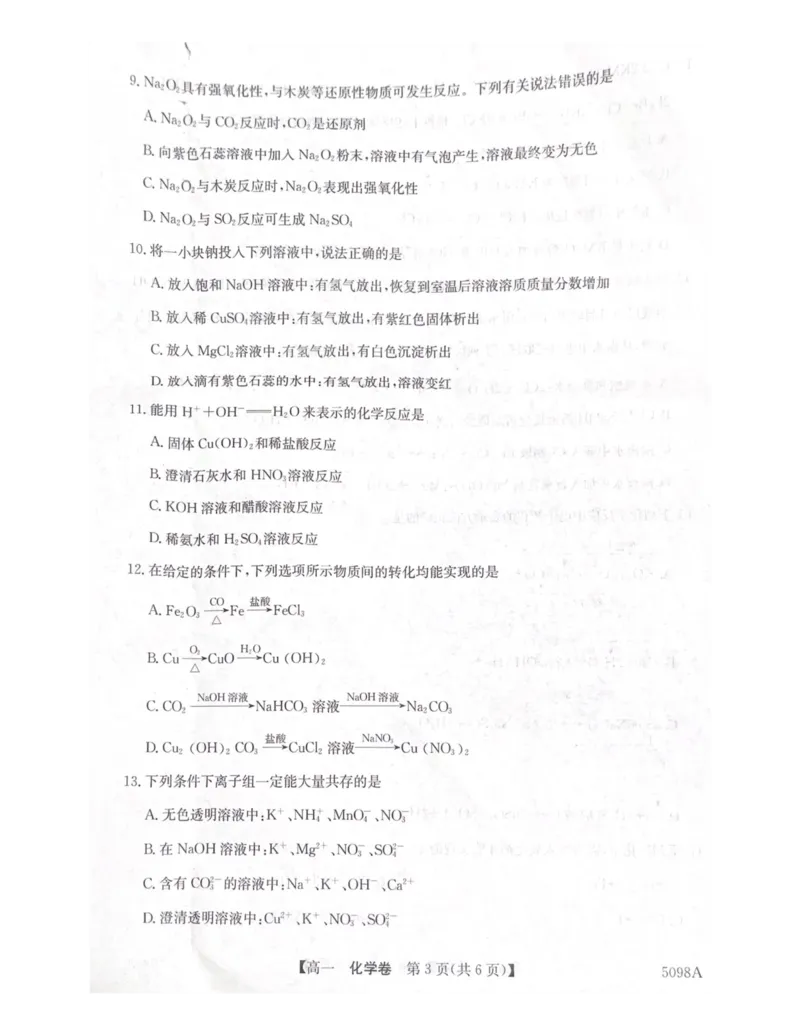 9. Na₂O₂具有强氧化性,与木炭等还原性物质可发生反应。下列有关说法错误的是
A. Na₂O₂与 CO₂反应时,CO₂是还原剂
B. 向紫色石蕊溶液中加入 Na₂O₂粉末,溶液中有气泡产生,溶液最终变为无色
C. Na₂O₂与木炭反应时,Na₂O₂表现出强氧化性
D. Na₂O₂与 SO₂反应可生成 Na₂SO₄
10. 将一小块钠投入下列溶液中,说法正确的是
A. 放入饱和 NaOH 溶液中:有氢气放出,恢复到室温后溶液溶质质量分数增加
B. 放入稀 CuSO₄溶液中:有氢气放出,有紫红色固体析出
C. 放入 MgCl₂溶液中:有氢气放出,有白色沉淀析出
D. 放入滴有紫色石蕊的水中:有氢气放出,溶液变红
11. 能用 H⁺+OH⁻══H₂O 来表示的化学反应是
A. 固体 Cu(OH)₂和稀盐酸反应
B. 澄清石灰水和 HNO₃溶液反应
C. KOH 溶液和醋酸溶液反应
D. 稀氨水和 H₂SO₄溶液反应
12. 在给定的条件下,下列选项所示物质间的转化均能实现的是
A. Fe₂O₃ —CO/△→ Fe —盐酸→ FeCl₃
B. Cu —O₂/△→ CuO —H₂O→ Cu (OH)₂
C. CO₂ —NaOH 溶液→ NaHCO₃ 溶液 —NaOH 溶液→ Na₂CO₃
D. Cu₂ (OH)₂ CO₃ —盐酸→ CuCl₂ 溶液 —NaNO₃→ Cu (NO₃)₂
13. 下列条件下离子组一定能大量共存的是
A. 无色透明溶液中:K⁺、NH₄⁺、MnO₄⁻、NO₃⁻
B. 在 NaOH 溶液中:K⁺、Mg²⁺、NO₃⁻、SO₄²⁻
C. 含有 CO₃²⁻的溶液中:Na⁺、K⁺、OH⁻、Ca²⁺
D. 澄清透明溶液中:Cu²⁺、K⁺、NO₃⁻、SO₄²⁻
【高一 化学卷 第 3 页(共 6 页)】
5098A